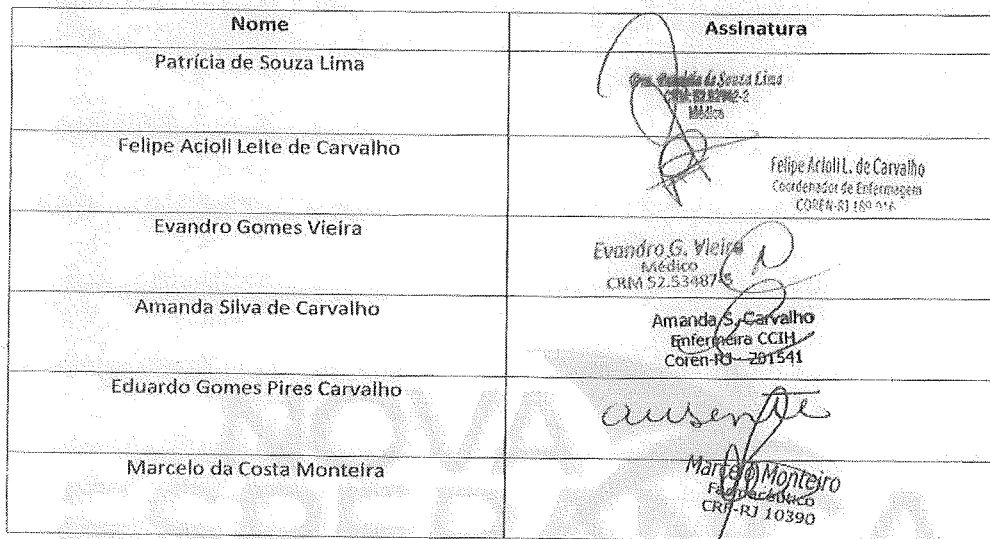 Nome Assinatura
Patrícia de Souza Lima
de Souza Lima
Médica
Felipe Acioli Leite de Carvalho
Felipe Acioli L. de Carvalho
Coordenador de Enfermagem
COREN-RJ
Evandro Gomes Vieira
Evandro G. Vieira
Médico
CRM 52.53487-5
Amanda Silva de Carvalho
Amanda S. Carvalho
Enfermeira CCIH
Coren-RJ 201541
Eduardo Gomes Pires Carvalho
ausente
Marcelo da Costa Monteira
Marcelo Monteiro
Farmacêutico
CRF-RJ 10390
NOVA